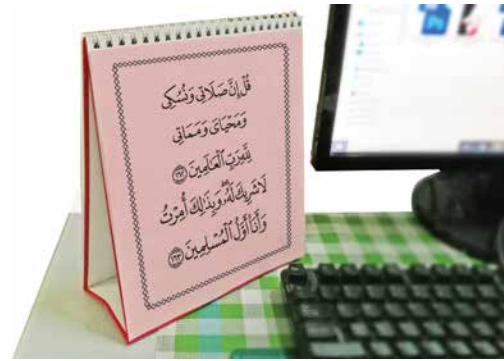 قُلْ إِنَّ صَلَاتِى وَنُسُكِى
وَمَحْيَاىَ وَمَمَاتِى
لِلَّهِ رَبِّ الْعَالَمِينَ ١٦٢
لَا شَرِيكَ لَهُۥ وَبِذَٰلِكَ أُمِرْتُ
وَأَنَا أَوَّلُ الْمُسْلِمِينَ ١٦٣
Ps